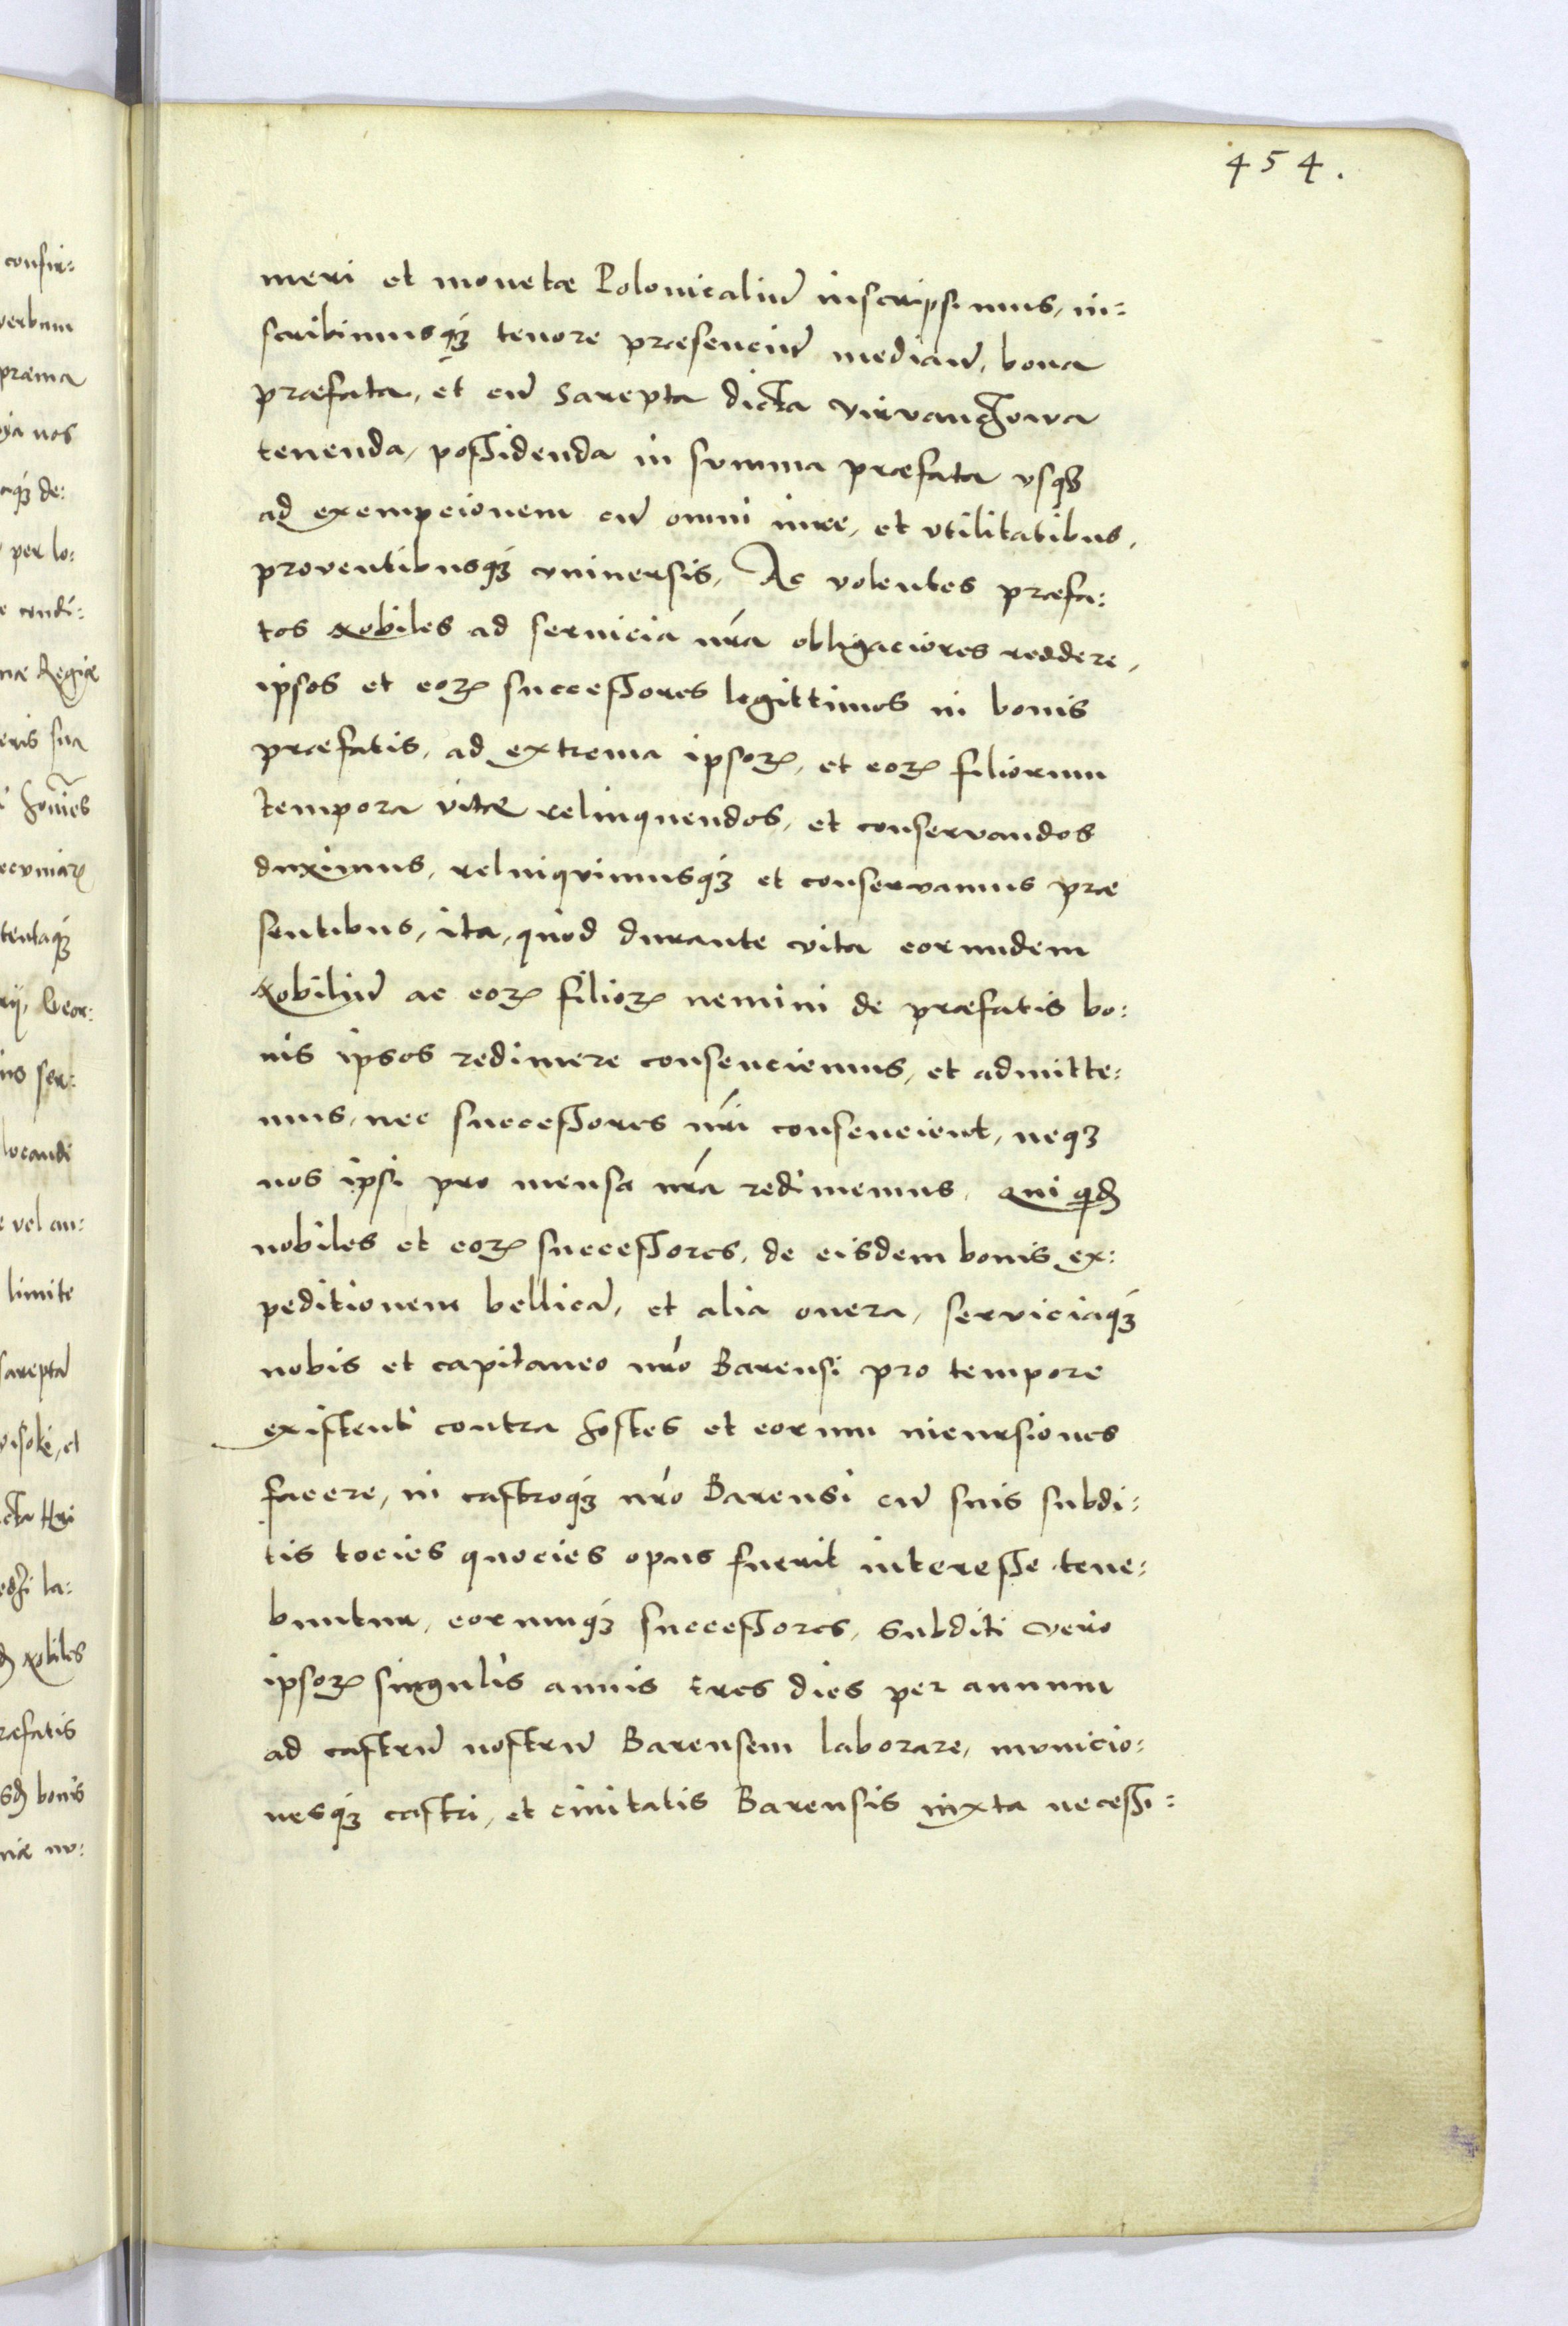 454.
meri et monetæ Polonicaliũ inscripsimus, in=
scribimusqꝫ tenore præsenciũ mediañ, bona
præfata, et cũ Sarepta dicta Virvanchowa
tenenda, possidenda in summa præfata vsqꝫ
ad exempcionem cũ omni iure, et vtilitatibus,
proventibusqꝫ vniuersis, Ac volentes præfa:
tos Nobiles ad seruicia nr̃a obligaciores reddere,
ipsos et eoꝝ successores legittimos in bonis
præfatis, ad extrema ipsoꝝ, et eoꝝ filiorum
tempora vitæ relinquendos, et conservandos
duximus, relinqvimusqꝫ et conservamus præ
sentibus, ita, quod durante vita eorundem
Nobiliũ ac eoꝝ filioꝝ nemini de præfatis bo:
nis ipsos redimere consenciemus, et admitte:
mus, nec successores nr̃i consencient, neqꝫ
nos ipsi pro mensa nr̃a redimemus, Qui qđ
nobiles et eoꝝ successores, de eisdem bonis ex:
peditionem bellicã, et alia onera, serviciaqꝫ
nobis et capitaneo nr̃o Barensi pro tempore
existenti contra hostes et eorum incursiones
facere, in castroqꝫ nr̃o Barensi cũ suis subdi:
tis tocies quocies opus fuerit interesse tene:
buntur, eorumqꝫ successores, Subditi vero
ipsoꝝ singulis annis tres dies per annum
ad castrũ nostrũ Barensem laborare, municio:
nesqꝫ castri, et ciuitatis Barensis iuxta necessi:
confir=
verbum
per lo:
e condi:
næ Regiæ
tentaqꝫ
locandi
e vel an:
limite
Nobiles
bonis